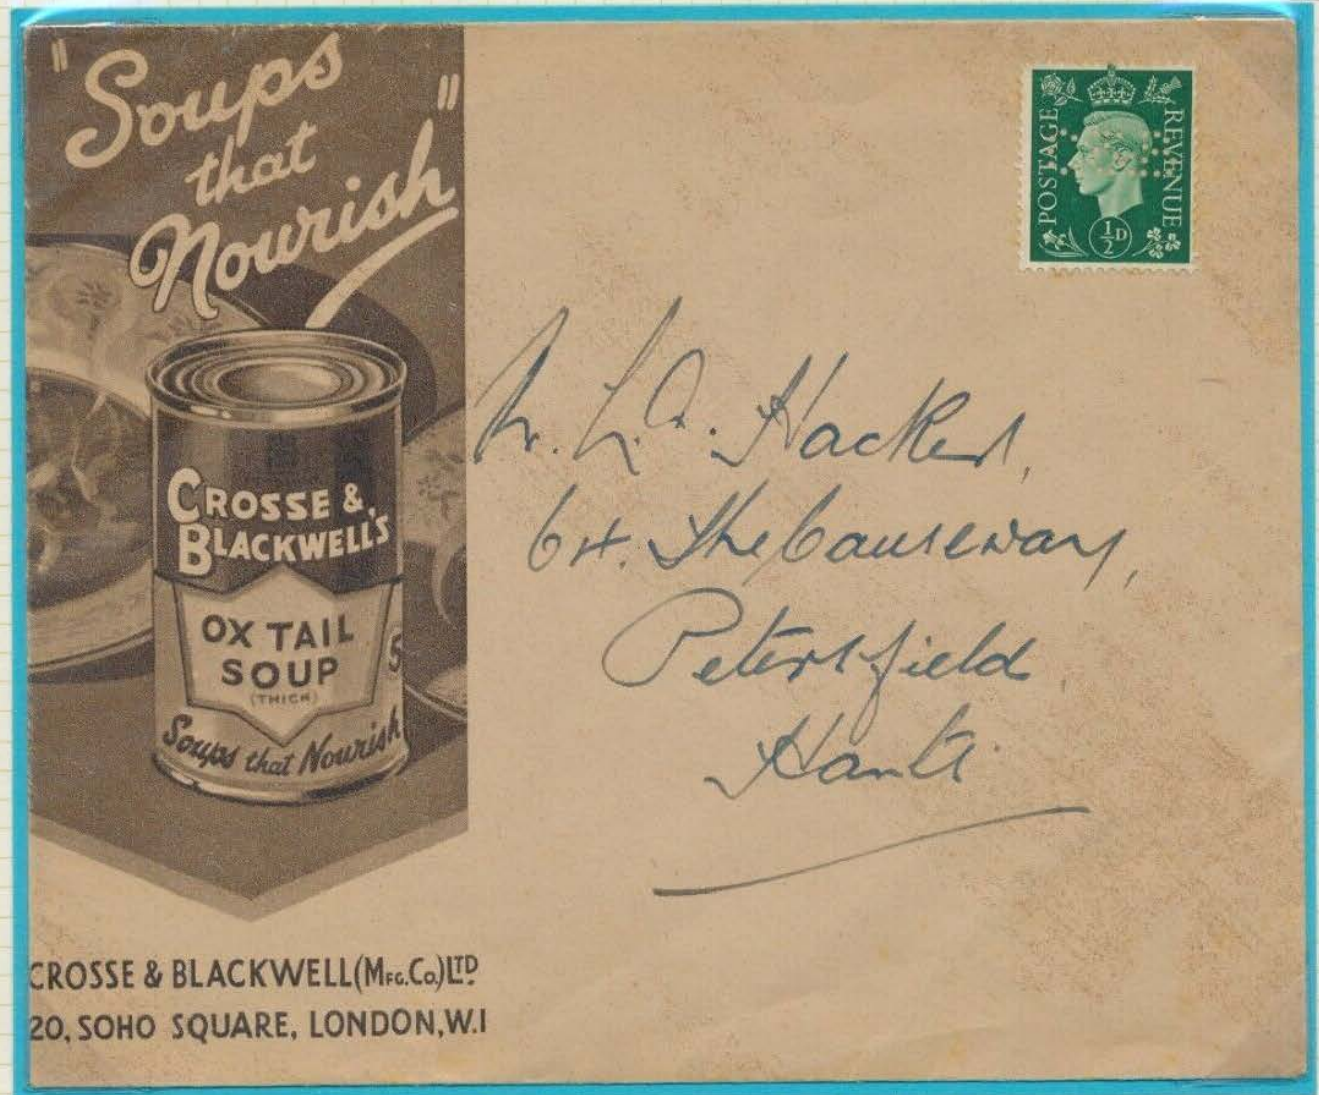 "Soups
that
Nourish"
CROSSE &
BLACKWELL'S
OX TAIL
SOUP
(THICK)
5
Soups that Nourish
CROSSE & BLACKWELL (MFG. CO.) LTD.
20, SOHO SQUARE, LONDON, W.1
POSTAGE
REVENUE
½D
64. The Causeway,
Petersfield,
Hants.